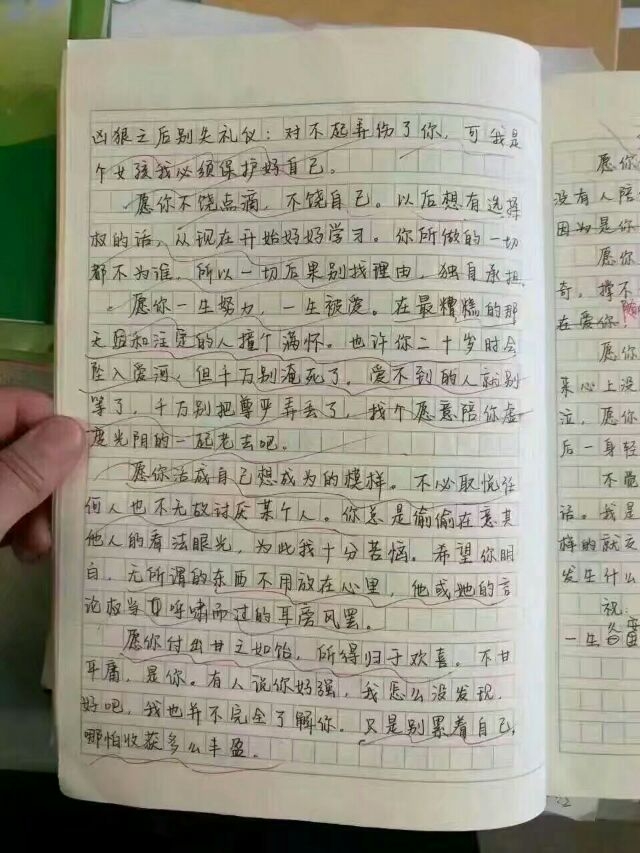 凶狠之后别失礼仪：对不起弄伤了你，可我是
个女孩我必须保护好自己。
愿你不饶点痛，不饶自己。以后想有选择
权的话，从现在开始好好学习。你所做的一切
都不为谁，所以一切后果别找理由，独自承担。
愿你一生努力，一生被爱。在最糟糕的那
天因和注定的人撞个满怀。也许你二十岁时会
坠入爱河，但千万别淹死了，爱不到的人就别
等了，千万别把尊严弄丢了，找个愿意陪你虚
度光阴的一起老去吧。
愿你活成自己想成为的模样。不必取悦任
何人也不无故讨厌某个人。你总是偷偷在意其
他人的看法眼光，为此我十分苦恼。希望你明
白，无所谓的东西不用放在心里，他或她的言
论权当呼啸而过的耳旁风罢。
愿你付出甘之如饴，所得归于欢喜。不甘
平庸，是你。有人说你好强，我怎么没发现，
好吧，我也并不完全了解你。只是别累着自己，
哪怕收获多么丰盈。
愿你
没有人陪
因为是你
愿你
奇，撑不
在爱你
愿你
来心上没
泣，愿你
后一身轻
不觉
话。我是
样的就
发生什么
祝：
一生